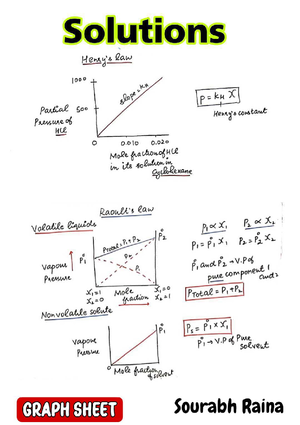 Solutions
Henry's law
1000
Partial
Pressure of
HCl
500
slope = KH
0 0.010 0.020
Mole fraction of HCl
in its solution in
Cyclohexane
P = KH X
Henry's constant
Raoult's law
Volatile liquids
Vapour
Pressure
P°1
P°2
PTotal = P1+P2
P2
P1
X1=1
X2=0
Mole
fraction
X1=0
X2=1
P1 ∝ X1
P2 ∝ X2
P1 = P°1 X1
P2 = P°2 X2
P°1 and P°2 → V.P of
pure component 1
and 2
PTotal = P1+P2
Nonvolatile solute
Vapour
Pressure
P°1
0
Mole fraction
of solvent
Ps = P°1 × X1
P°1 → V.P of Pure
solvent
GRAPH SHEET
Sourabh Raina